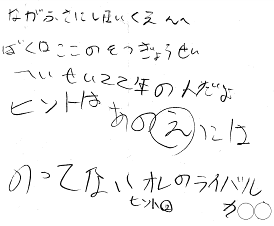 ながふさにしほいくえんへ
ぼくはここのそつぎょうせい
へいせい22年の人だよ
ヒントは あのえには
のってない オレのライバル
ヒント② カ○○